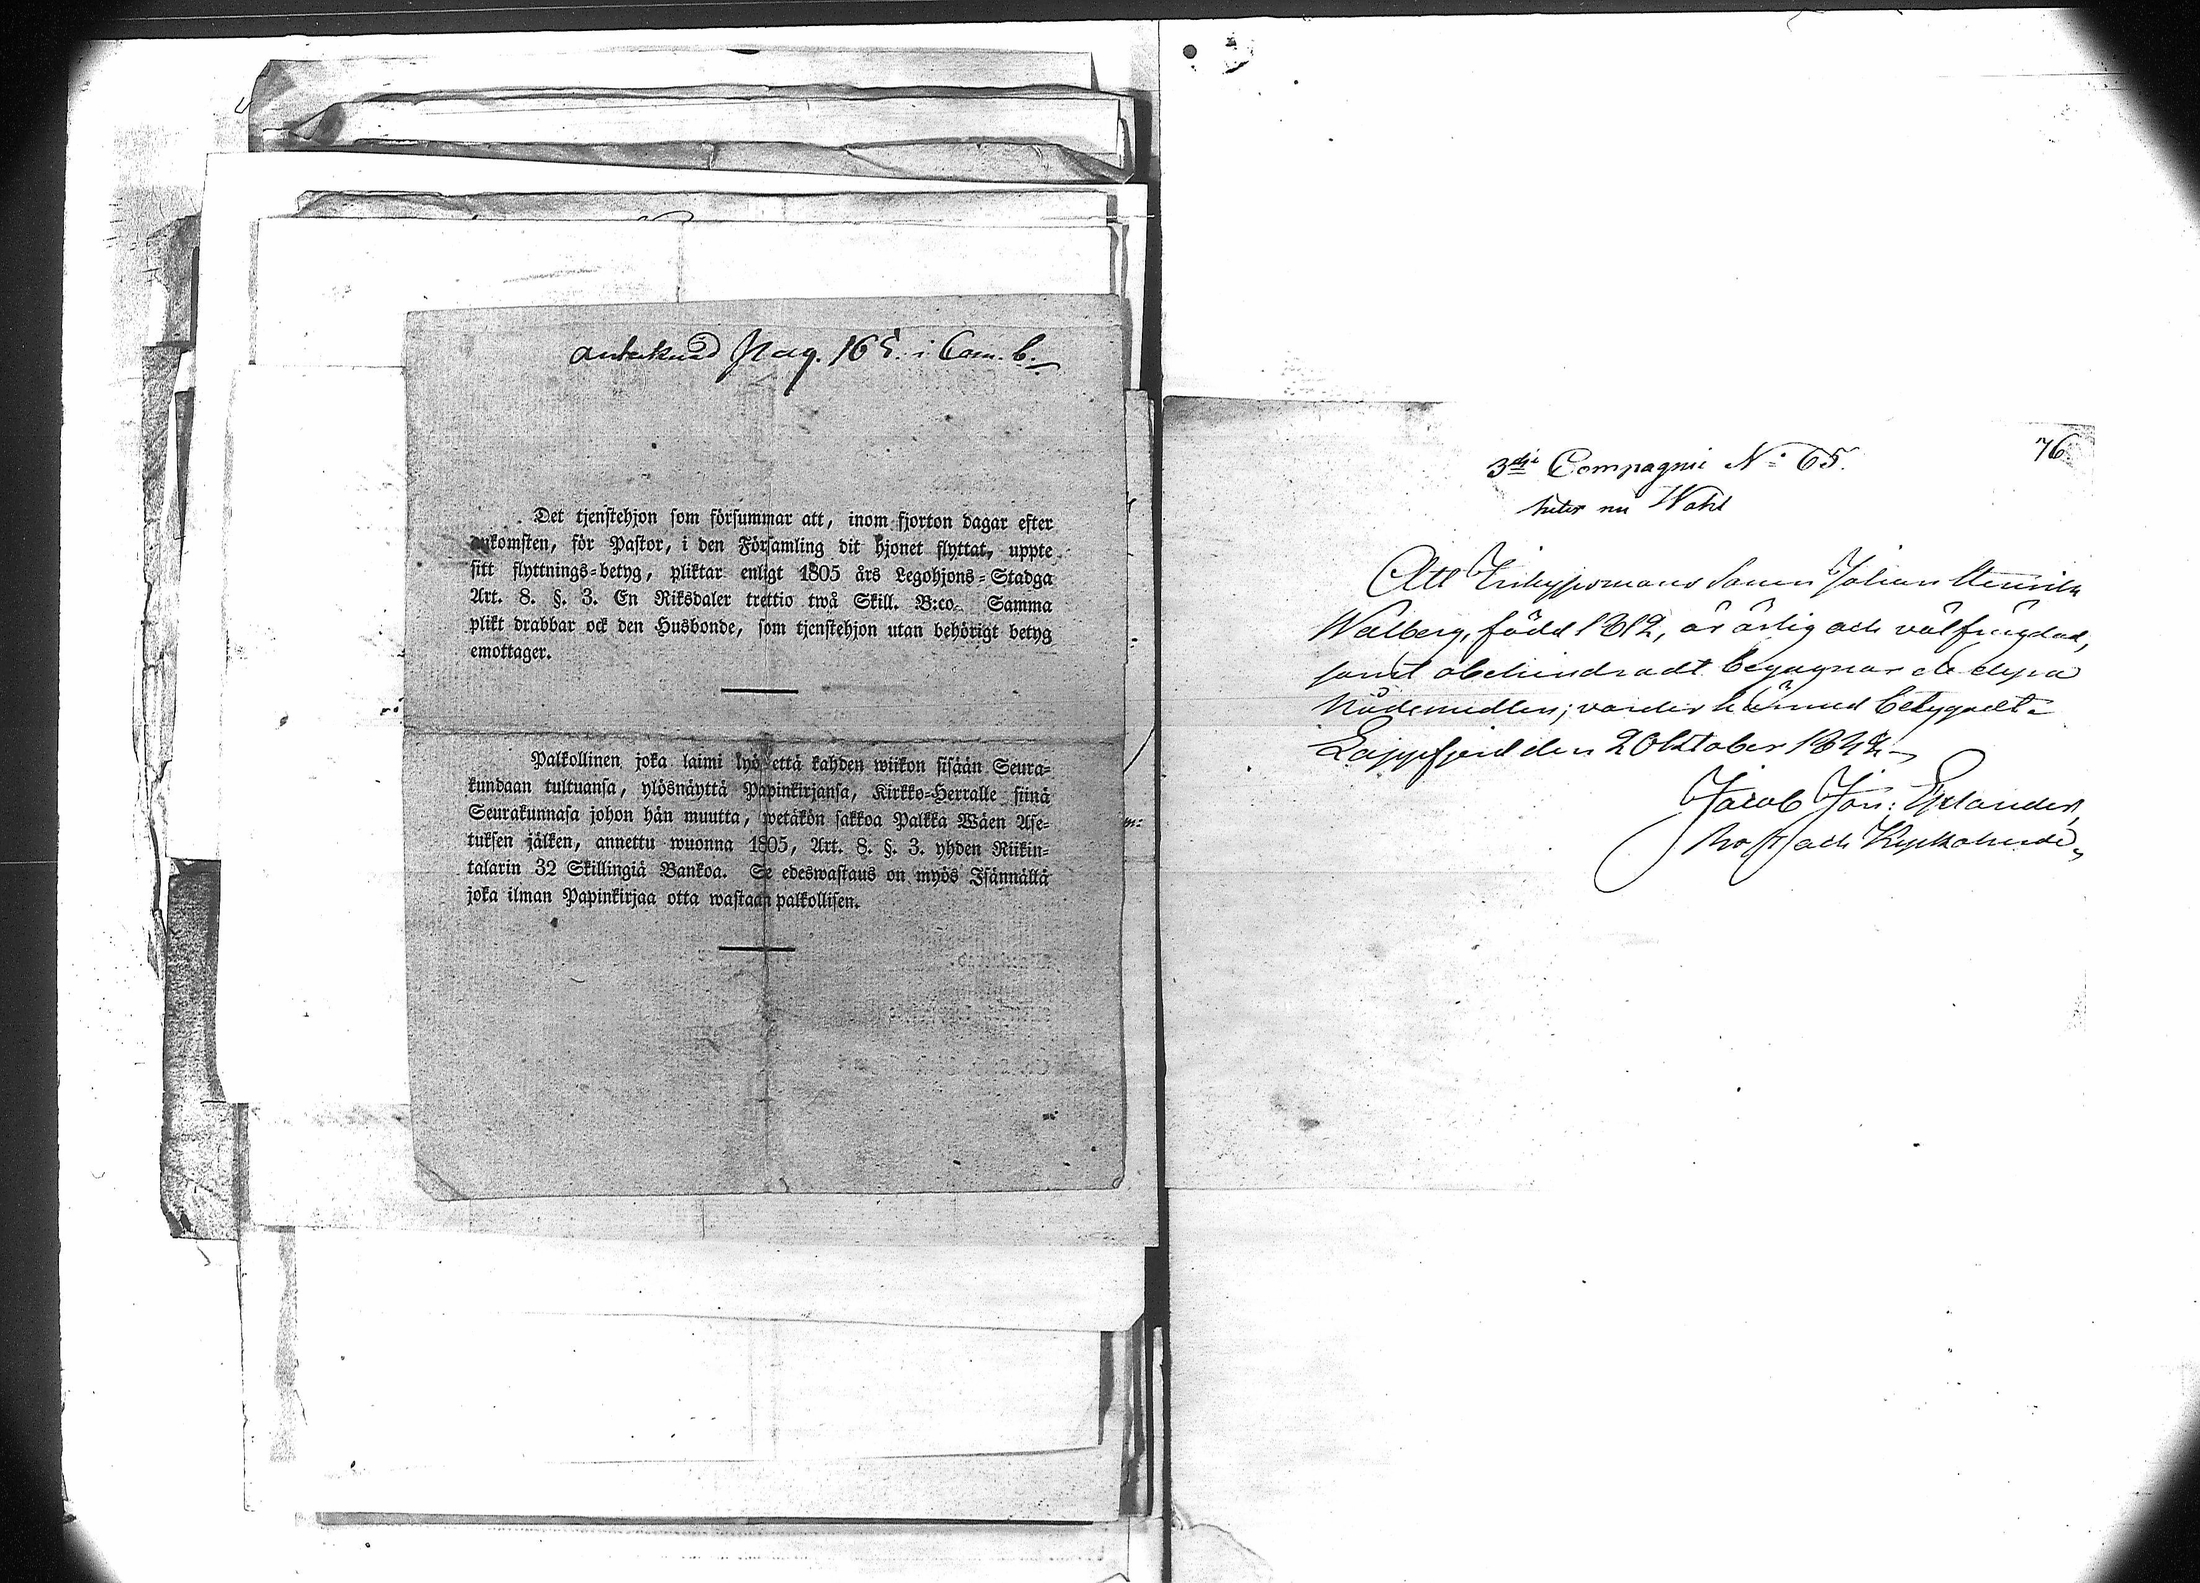 antecknad pag. 165. i Com. b.
Det tjenstehjon som försummar att, inom fjorton dagar efter
ankomsten, för Pastor, i den Församling dit hjonet flyttat, uppte
sitt flyttnings-betyg, pliktar enligt 1805 års Legohjons-Stadga
Art. 8. §. 3. En Riksdaler trettio twå Skill. B:co. Samma
plikt drabbar ock den Husbonde, som tjenstehjon utan behörigt betyg
emottager.
Palkollinen joka laimi lyö että kahden wiikon sisään Seura-
kundaan tultuansa, ylösnäyttä Papinkirjansa, Kirkko-Herralle siinä
Seurakunnasa johon hän muutta, wetäkön sakkoa Palkka Wäen Ase-
tuksen jälken, annettu wuonna 1805, Art. 8. §. 3. yhden Riikin-
talarin 32 Skillingiä Bankoa. Se edeswastaus on myös Isännällä
joka ilman Papinkirjaa otta wastaan palkollisen.
76.
3dje Compagnie No 65.
heter nu Wahl
Att Johan Henrik
Walberg, född 1812, är ärlig och välfrägdad,
samt obehindradt begagnar de dyra
Nådemedlen; varder härmed betygadt.
Lappfjerd den 2 Oktober 184
Jacob Jon:
Prost och Kyrkoherde